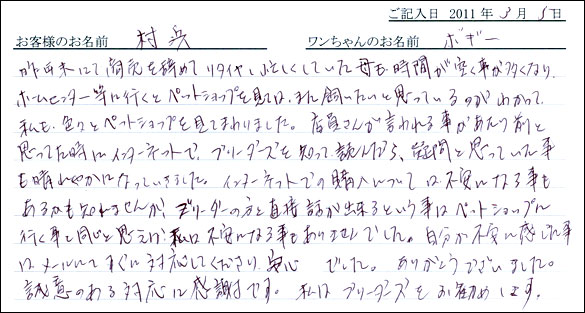 ご記入日 2011年3月5日
お客様のお名前 村兵 ワンちゃんのお名前 ボギー
昨年末にて商売を辞めてリタイヤし忙しくしていた母も時間が空く事が多くなり、
ホームセンター等に行くとペットショップを見ては、また飼いたいと思っているのがわかって、
私も色々とペットショップを見てまわりました。店員さんが言われる事があたり前と
思ってた時にインターネットで、ブリーダーズを知って読んだら、疑問と思っていた事
も晴れやかになっていきました。インターネットでの購入については不安になる事も
あるかも知れませんが、ブリーダーの方と直接話が出来るという事はペットショップに
行く事と同じと思えば私は不安になる事もありませんでした。自分が不安に感じた事
はメールにてすぐに対応してくださり安心でした。ありがとうございました。
誠意のある対応に感謝です。私はブリーダーズをお勧めします。